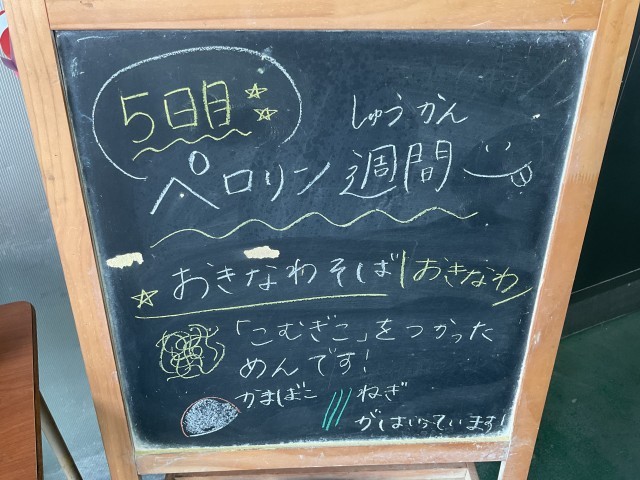 5日目
しゅうかん
ペロリン週間
おきなわそば/おきなわ/
「こむぎこ」をつかった
めんです！
かまぼこ ねぎ
がはいっています！